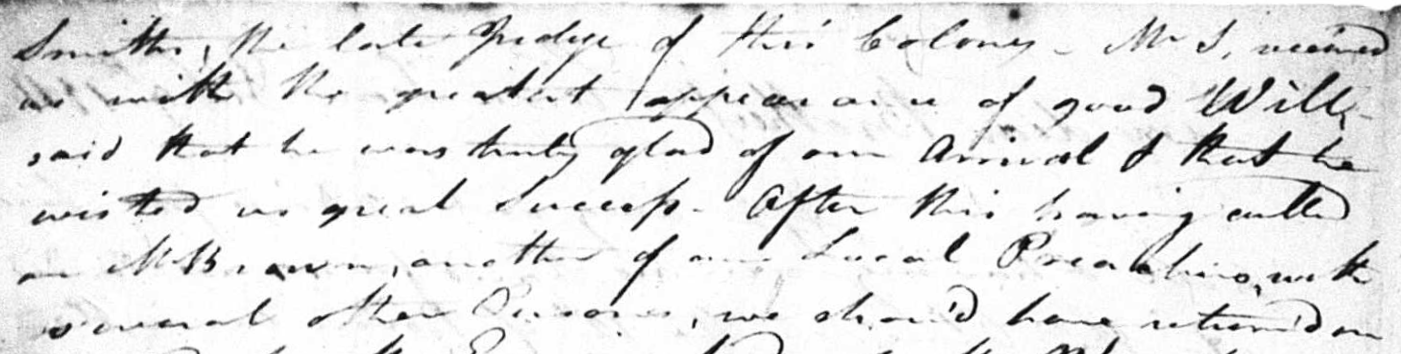 Smith, the late Judge of this Colony - Mr S, received
us with the greatest appearance of good Will,
said that he was truly glad of our Arrival & that he
wished us great Success. After this having called
on Mr Brown, another of our Local Preachers, with
several other Persons, we shou'd have return'd on